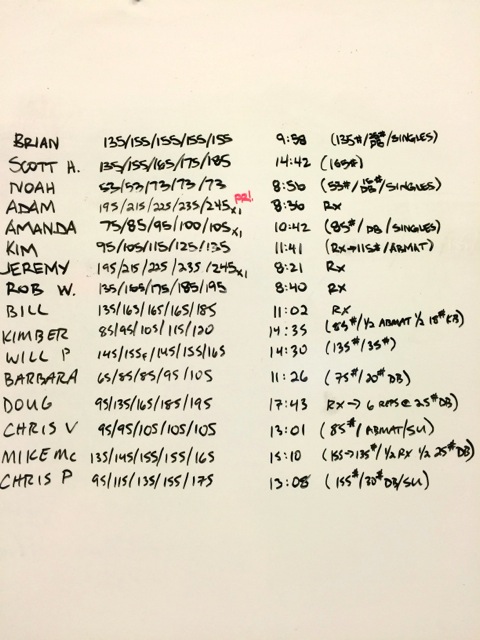 BRIAN 135/155/155/155/155 9:58 (135#/35# DB/SINGLES)
SCOTT H. 135/155/165/175/185 14:42 (165#)
NOAH 53/53/73/73/73 8:56 (53#/15# DB/SINGLES)
ADAM 195/215/225/235/245x1 PR! 8:36 RX
AMANDA 75/85/95/100/105x1 10:42 (85#/DB/SINGLES)
KIM 95/105/115/125/135 11:41 (RX→115#/ABMAT)
JEREMY 195/215/225/235/245x1 8:21 RX
ROB W. 135/155/175/185/195 8:40 RX
BILL 135/165/165/165/185 11:02 RX
KIMBER 85/95/105/115/120 14:35 (85#/½ ABMAT ½ 18# KB)
WILL P 145/155F/145/155/165 14:30 (135#/35#)
BARBARA 65/85/85/95/105 11:26 (75#/20# DB)
DOUG 95/135/165/185/195 17:43 RX→ 6 REPS @ 25# DB)
CHRIS V 95/95/105/105/105 13:01 (85#/ABMAT/SU)
MIKE MC 135/145/155/155/165 15:10 (155→135#/½ RX ½ 25# DB)
CHRIS P 95/115/135/155/175 13:08 (155#/30# DB/SU)